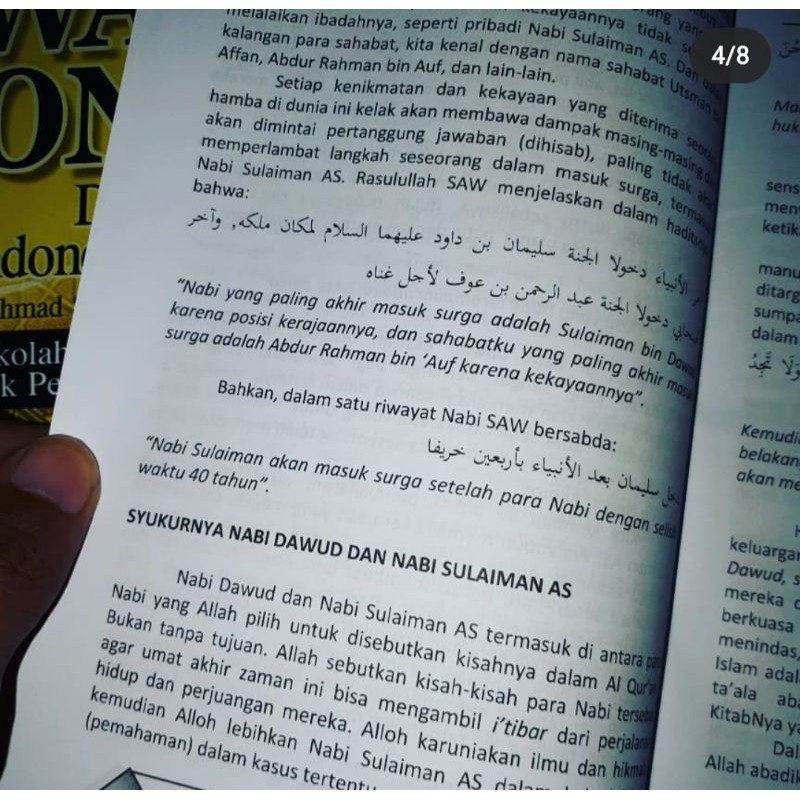 4/8
WA
ON
D
done
hmad
kolah
k Pe
melalaikan ibadahnya, seperti pribadi Nabi Sulaiman AS. Dan
kalangan para sahabat, kita kenal dengan nama sahabat Utsman
Affan, Abdur Rahman bin Auf, dan lain-lain.
Setiap kenikmatan dan kekayaan yang diterima seorang
hamba di dunia ini kelak akan membawa dampak masing-masing
akan dimintai pertanggung jawaban (dihisab), paling tidak
memperlambat langkah seseorang dalam masuk surga, termasuk
Nabi Sulaiman AS. Rasulullah SAW menjelaskan dalam haditsnya
bahwa:
الأنبياء دخولا الجنة سليمان بن داود عليهما السلام لمكان ملكه, وآخر
دخولا الجنة عبد الرحمن بن عوف لأجل غناه
"Nabi yang paling akhir masuk surga adalah Sulaiman bin Dawud
karena posisi kerajaannya, dan sahabatku yang paling akhir masuk
surga adalah Abdur Rahman bin 'Auf karena kekayaannya".
Bahkan, dalam satu riwayat Nabi SAW bersabda:
سليمان بعد الأنبياء بأربعين خريفا
"Nabi Sulaiman akan masuk surga setelah para Nabi dengan selisih
waktu 40 tahun".
SYUKURNYA NABI DAWUD DAN NABI SULAIMAN AS
Nabi Dawud dan Nabi Sulaiman AS termasuk di antara para
Nabi yang Allah pilih untuk disebutkan kisahnya dalam Al Qur'an
Bukan tanpa tujuan. Allah sebutkan kisah-kisah para Nabi tersebut
agar umat akhir zaman ini bisa mengambil i'tibar dari perjalanan
hidup dan perjuangan mereka. Alloh karuniakan ilmu dan hikmah
kemudian Alloh lebihkan Nabi Sulaiman AS dalam
(pemahaman) dalam kasus tertentu
Ma
huk
sens
men
ketik
manu
ditarg
sumpa
dalam
وَلَا تَجِدُ
Kemudi
belakan
akan me
H
keluargan
Dawud, s
mereka d
berkuasa
menindas,
Islam adal
ta'ala aba
KitabNya ya
Dal
Allah abadik